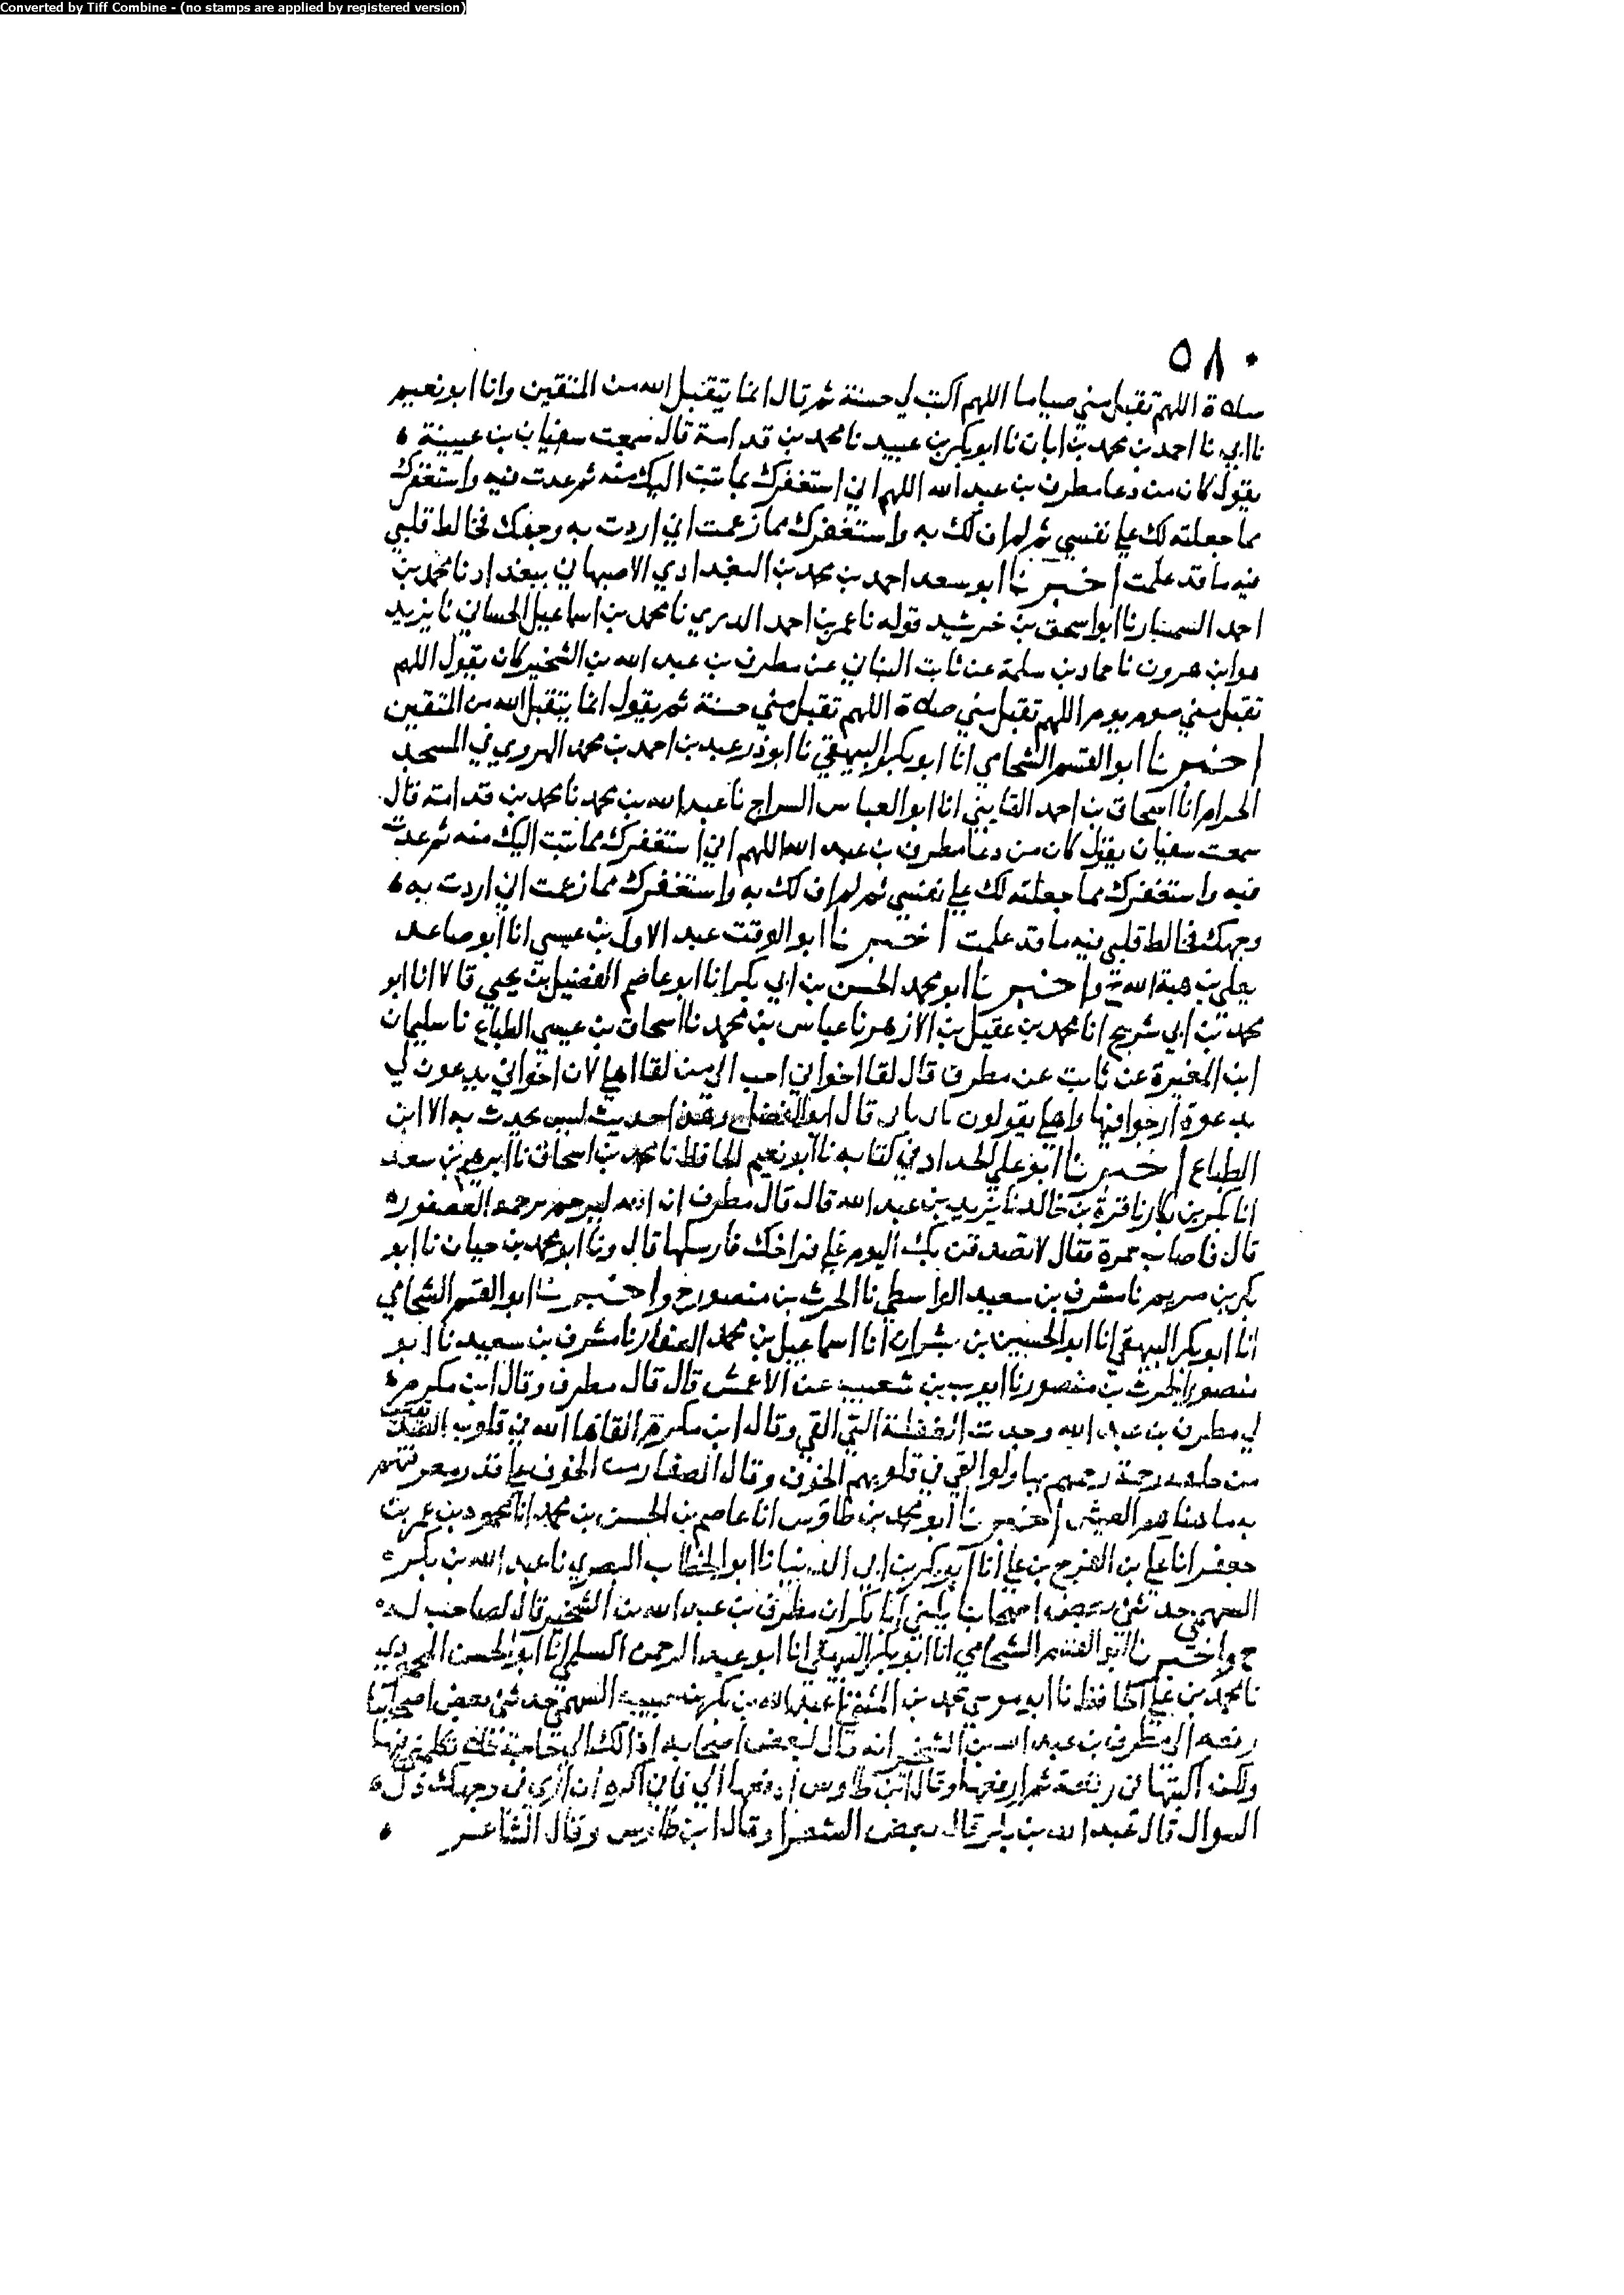 Converted by Tiff Combine - (no stamps are applied by registered version)
٥٨٠
صلاة اللهم تقبل مني صياما اللهم اكتب لي حسنة ثم قال انما يتقبل الله من المتقين وانا ابو نعيم
نا ابي نا احمد بن محمد بن ابان نا ابو بكر بن عبيد نا محمد بن قدامة قال سمعت سفيان بن عيينة
يقول كان من دعا مطرف بن عبد الله اللهم اني استغفرك مما تبت اليك منه ثم عدت فيه واستغفرك
مما جعلته لك علي نفسي ثم لم اف لك به واستغفرك مما زعمت اني اردت به وجهك فخالط قلبي
فيه ما قد علمت اخبرنا ابو سعد احمد بن محمد بن البغدادي الاصبهاني ببغداد نا محمد بن
احمد السمسار نا ابو اسحق بن خرشيد قوله نا عمر بن احمد الدري نا محمد بن اسماعيل الحساني نا يزيد
هو ابن هرون نا حماد بن سلمة عن ثابت البناني عن مطرف بن عبد الله بن الشخير كان يقول اللهم
تقبل مني صوم يوم اللهم تقبل مني صلاة اللهم تقبل مني حسنة ثم يقول انما يتقبل الله من المتقين
اخبرنا ابو القسم الشحامي انا ابو بكر البيهقي نا ابو ذر عبد بن احمد بن محمد الهروي في المسجد
الحرام انا اسحاق بن احمد القايني انا ابو العباس السراج نا عبد الله بن محمد نا محمد بن قدامة قال
سمعت سفيان يقول كان من دعا مطرف بن عبد الله اللهم اني استغفرك مما تبت اليك منه ثم عدت
فيه واستغفرك مما جعلته لك علي نفسي ثم لم اف لك به واستغفرك مما زعمت اني اردت به
وجهك فخالط قلبي فيه ما قد علمت اخبرنا ابو الوقت عبد الاول بن عيسى انا ابو صاعد
يعلي بن هبة الله ح واخبرنا ابو محمد الحسن بن ابي بكر انا ابو عاصم الفضيل بن يحيي قالا انا ابو
محمد بن ابي شريح انا محمد بن عقيل بن الازهر نا عباس بن محمد نا اسحاق بن عيسي الطباع نا سليمان
ابن المغيرة عن ثابت عن مطرف قال لقا اخواني احب الي من لقا اهلي لان اخواني يدعون لي
بدعوة ارجوا فيها واهلي يقولون قال ابو الفضل حديث ليس يحدث به الا ابن
الطباع اخبرنا ابو علي الحداد في كتابه نا ابو نعيم الحافظ نا محمد بن اسحاق نا ابرهيم بن سعد
انا بكر بن بكار نا قرة بن خالد نا يزيد بن عبد الله قال قال مطرف ان الله ليرحم برحمه العصفور
قال فاصاب حمرة فقال لاتصدقن بك اليوم علي فراخك فارسلها قال ونا ابو محمد بن حيان نا ابو
بكر بن مريم نا مشرف بن سعيد الواسطي نا الحرث بن منصور ح واخبرنا ابو القسم الشحامي
انا ابو بكر البيهقي انا ابو الحسين بن بشران انا اسماعيل بن محمد الصفار نا مشرف بن سعيد نا ابو
منصور الحرث بن منصور نا ايوب بن شعيب عن الاعمش قال قال مطرف وقال ابن مكرم
لي مطرف بن عبد الله وجدت الغفلة التي القي وقال ابن مكرم القاها الله في قلوب الصديقين
من خلقه رحمة رحمهم بها ولو القي في قلوبهم الخوف وقال الصفار من الخوف علي قدر معرفتهم
به ما هنا هم العيش اخبرنا ابو محمد بن طاوس انا عاصم بن الحسن بن محمد انا محمود بن عمر بن
جعفر انا علي بن الفرج بن علي انا ابو بكر بن ابي الدنيا نا ابو الخطاب البصري نا عبد الله بن بكر
السهمي حدثني بعض اصحابنا يكنى ابا بكر ان مطرف بن عبد الله بن الشخير قال لصاحب له
ح واخبرنا ابو القسم الشحامي انا ابو بكر البيهقي انا ابو عبد الرحمن السلمي انا ابو الحسن
نا محمد بن علي الحافظ نا ابو موسي محمد بن المثني نا عبد الله بن بكر بن حبيب السهمي حدثني بعض اصحابنا
رفعه الي مطرف بن عبد الله بن الشخير انه قال لبعض اصحابه اذا لك الي حاجة فلا تكلمني فيها
ولكن اكتبها في رقعة ثم ارفعها وقال ابن طاوس ارفعها الي فاني اكره ان اري في وجهك ذل
السوال قال عبد الله بن بكر قال بعض الشعرا وقال ابن طاوس وقال الشاعر